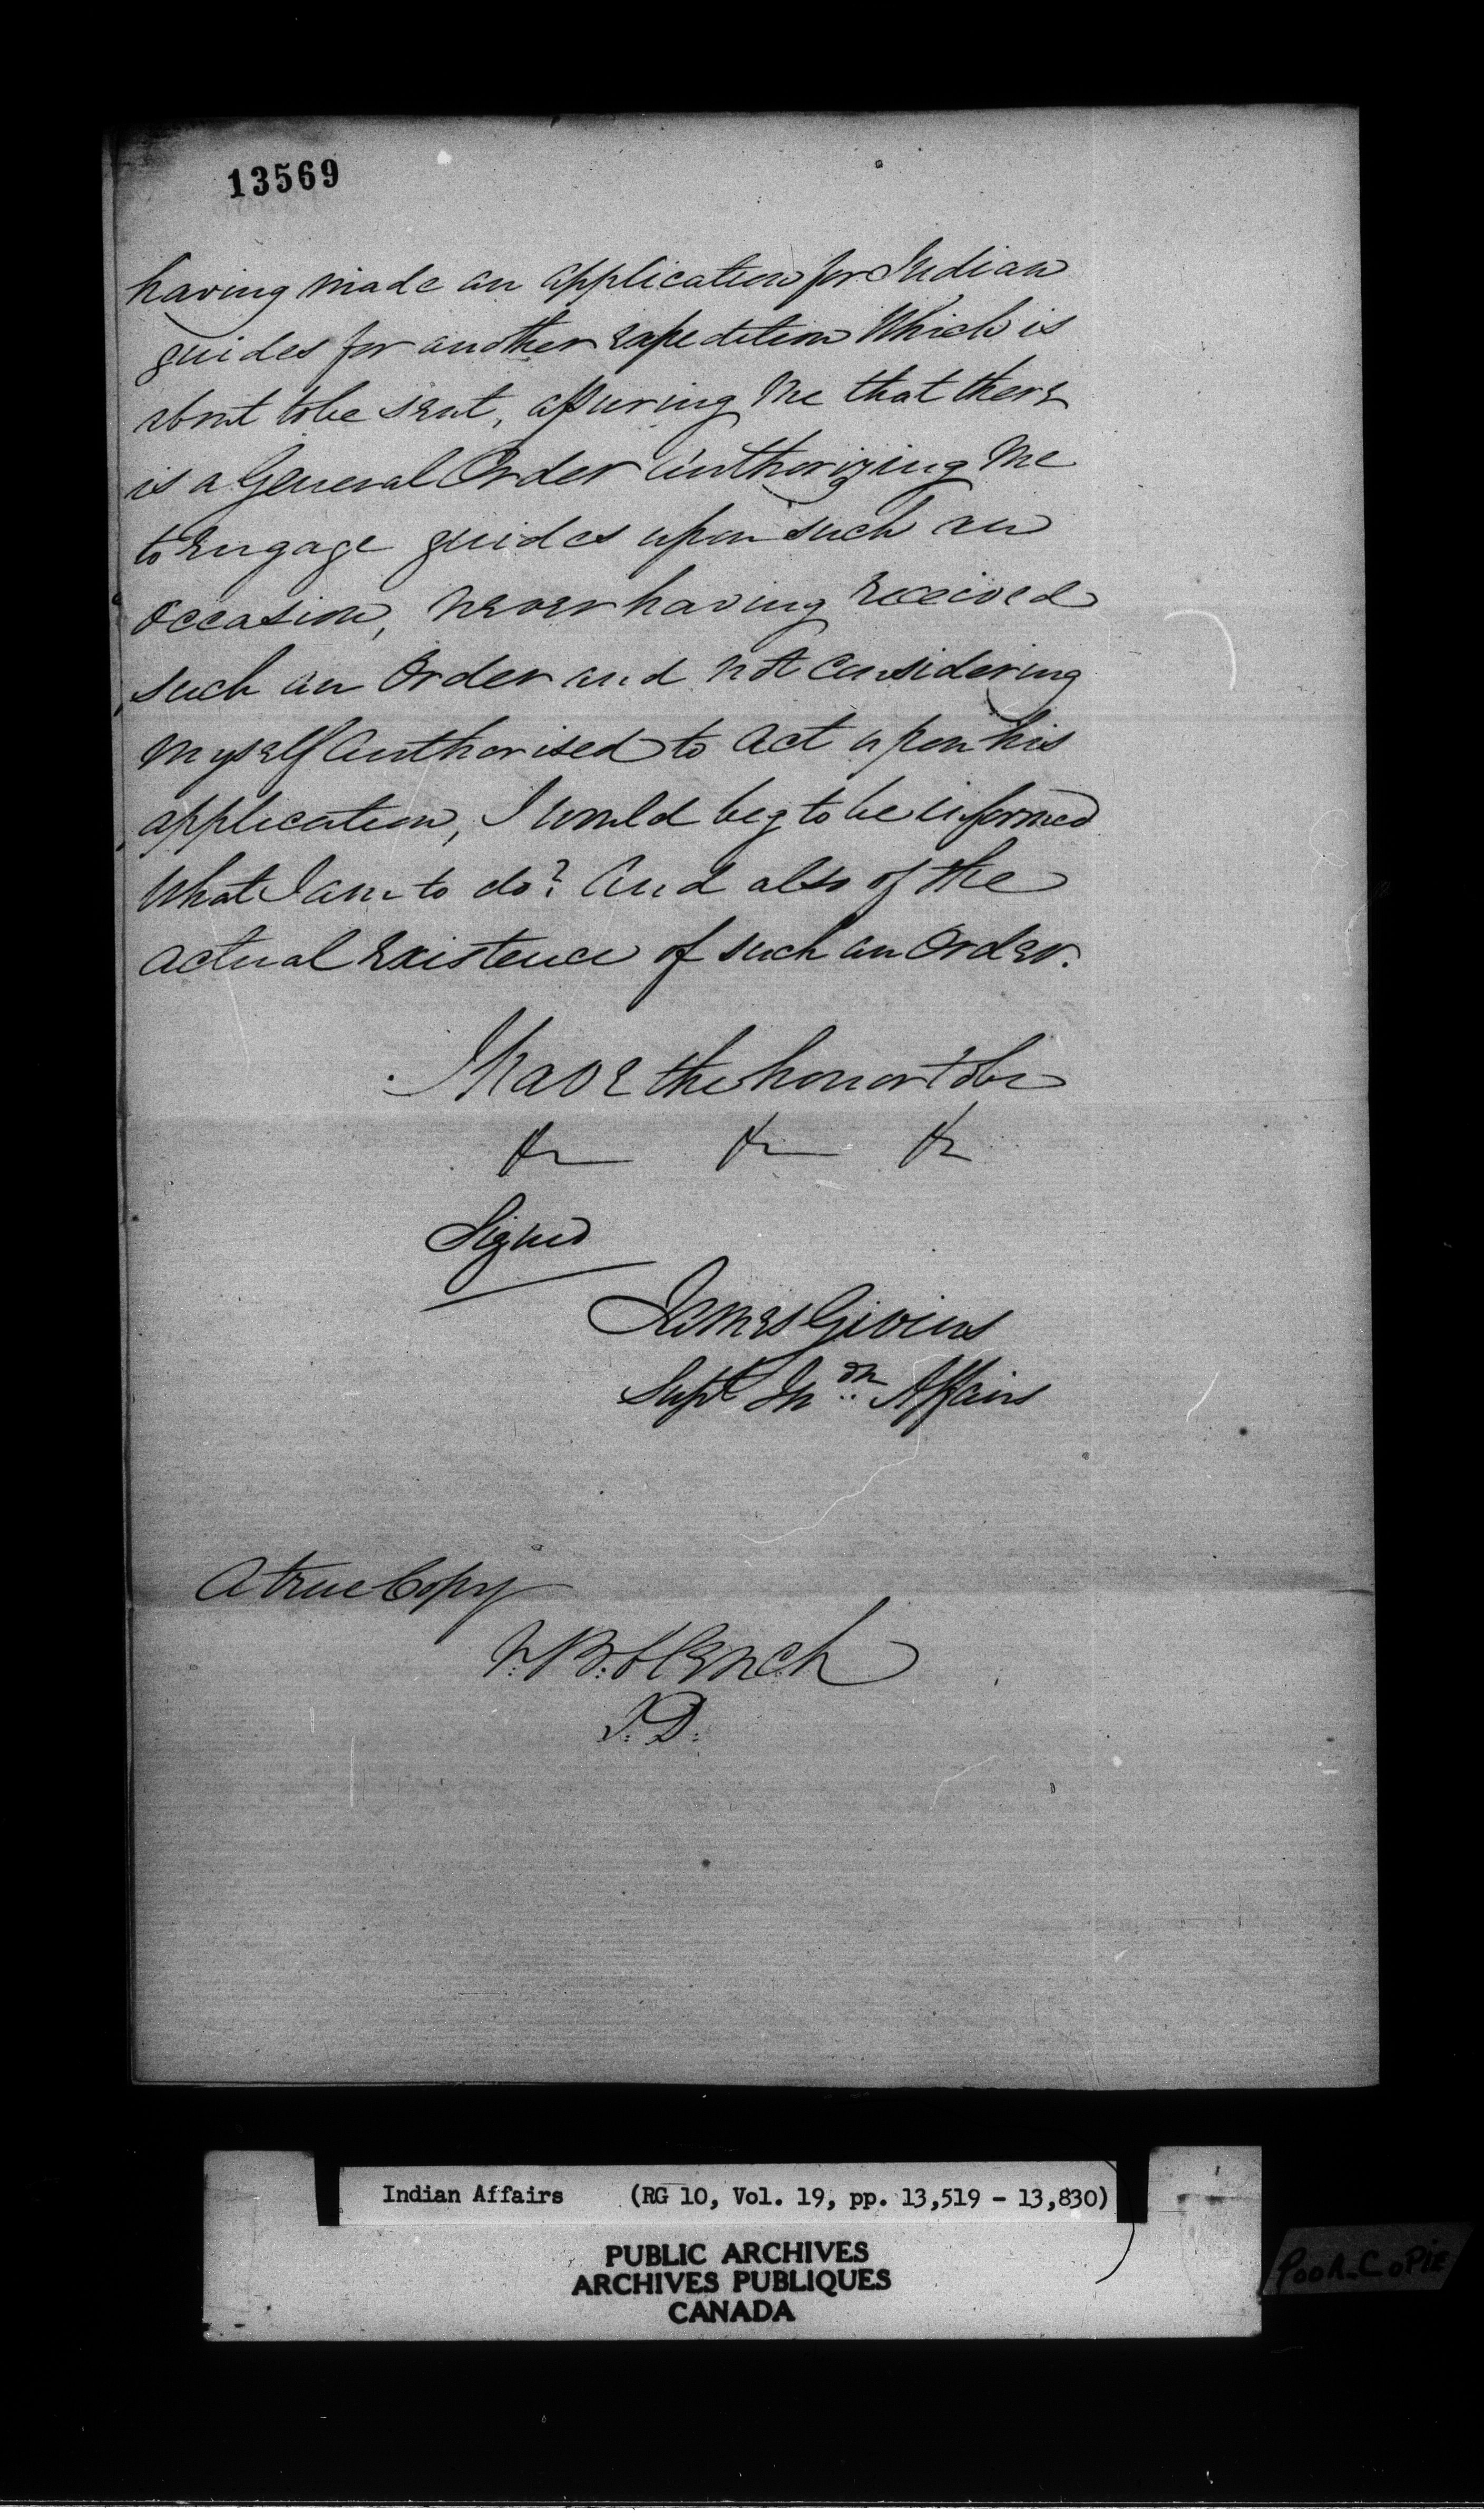 13569
having made an application for Indian
guides for another expedition Which is
about to be sent, assuring me that there
is a General Order authorizing me
to engage guides upon such an
occasion, never having received
such an Order and not considering
myself authorised to act upon his
application, I would beg to be informed
what I am to do? and also of the
actual existence of such an Order.
I have the honor to be
&c &c &c
Signed
James Givins
Supt Indn Affairs
A true Copy
I.D.
Indian Affairs (RG 10, Vol. 19, pp. 13,519 - 13,830)
PUBLIC ARCHIVES
ARCHIVES PUBLIQUES
CANADA
POOR COPIE